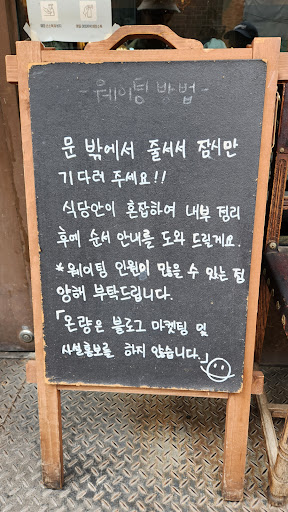 -웨이팅 방법-
문 밖에서 줄서서 잠시만
기다려 주세요!!
식당안이 혼잡하여 내부 정리
후에 순서 안내를 도와 드릴게요.
*웨이팅 인원이 많을 수 있는 점
양해 부탁드립니다.
「온량은 블로그 마켓팅 및
사설홍보를 하지 않습니다.」